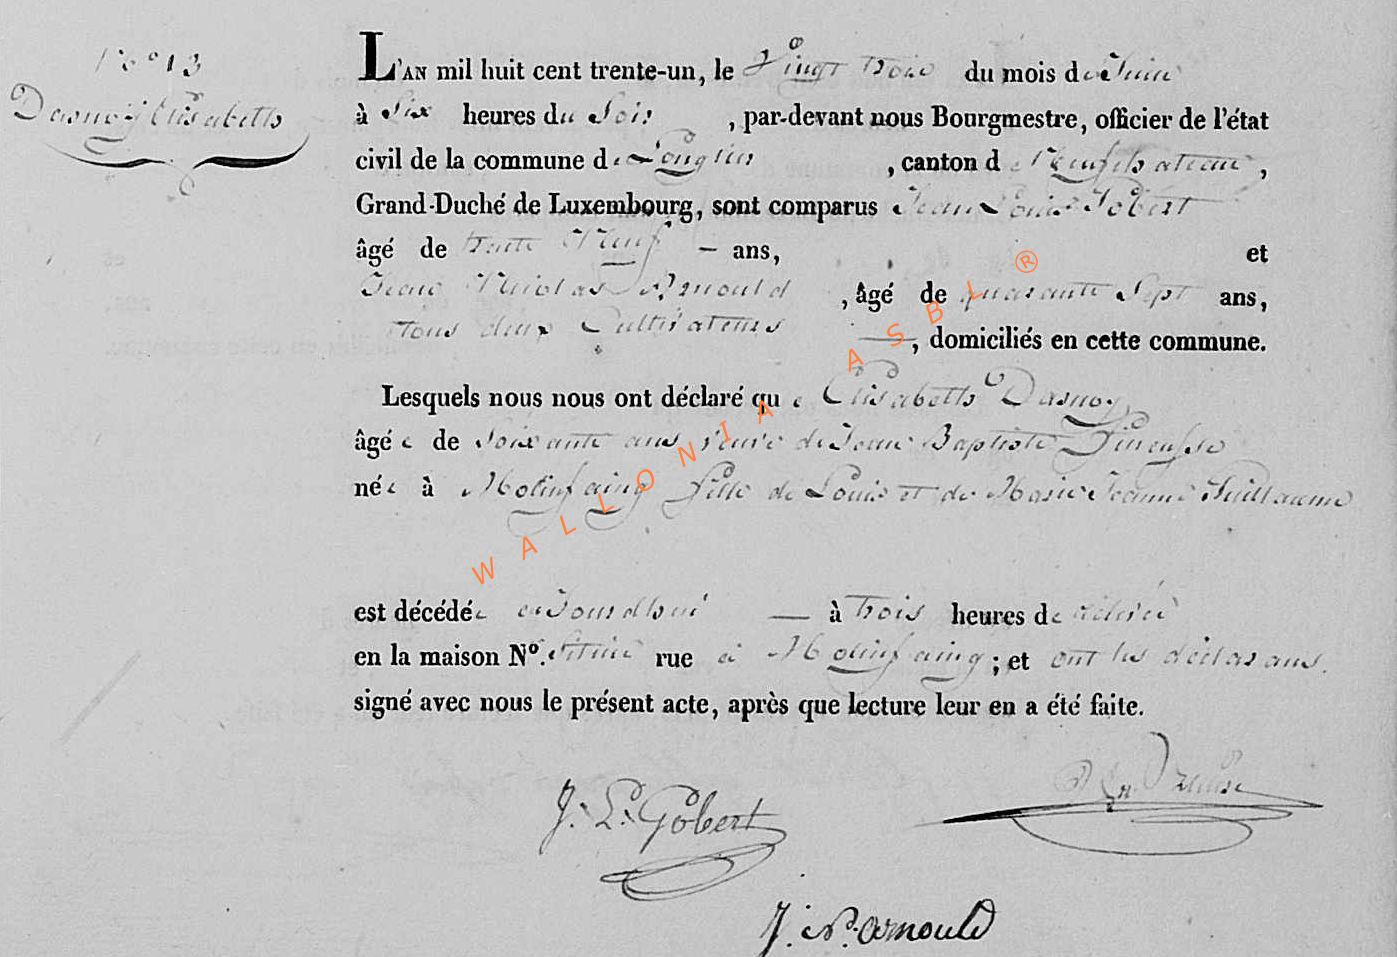 N° 13
Dasnoy Elisabeth
L'AN mil huit cent trente-un, le Vingt trois du mois de Juin
à Six heures du Soir, par-devant nous Bourgmestre, officier de l'état
civil de la commune de Longlier, canton de Neufchateau,
Grand-Duché de Luxembourg, sont comparus Jean Louis Gobert
âgé de trente Neuf — ans, et
Jean Nicolas Arnould, âgé de quarante Sept ans,
tous deux Cultivateurs —, domiciliés en cette commune.
Lesquels nous nous ont déclaré que Elisabeth Dasnoy
âgée de Soixante ans veuve de Jean Baptiste
née à Molinfaing fille de Louis et de Marie Jeanne Guillaume
est décédée aujourdhui — à trois heures de relevée
en la maison N°. située rue à Molinfaing; et ont les déclarans
signé avec nous le présent acte, après que lecture leur en a été faite.
J. L. Gobert
J. N. Arnould
WALLONIA ASBL ®